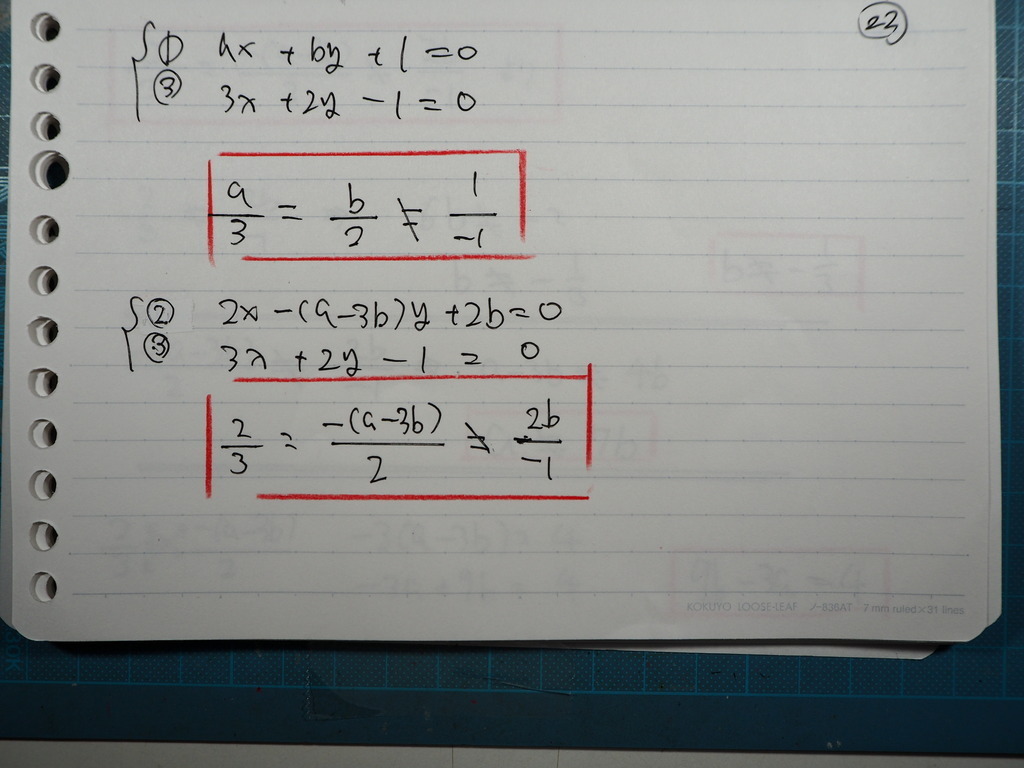 ㉓
① ax + by + 1 = 0
③ 3x + 2y - 1 = 0
a/3 = b/2 ≠ 1/-1
② 2x - (a-3b)y + 2b = 0
③ 3x + 2y - 1 = 0
2/3 = -(a-3b)/2 ≠ 2b/-1
KOKUYO LOOSE-LEAF ノ-836AT 7 mm ruled×31 lines